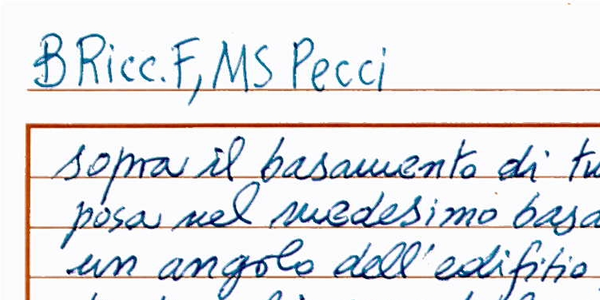 B Ricc. F, MS Pecci
sopra il basamento di tu
posa nel medesimo basa
un angolo dell'edifitio